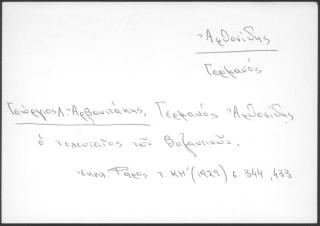 Ἀρθονίδης
Γερμανός
Γεώργιος Λ. Ἀρβανιτάκης, Γερμανός Ἀρθονίδης
ὁ τελευταῖος τῶν Βυζαντινῶν,
Φάρος τ. ΚΗ' (1929) σ. 344, 433